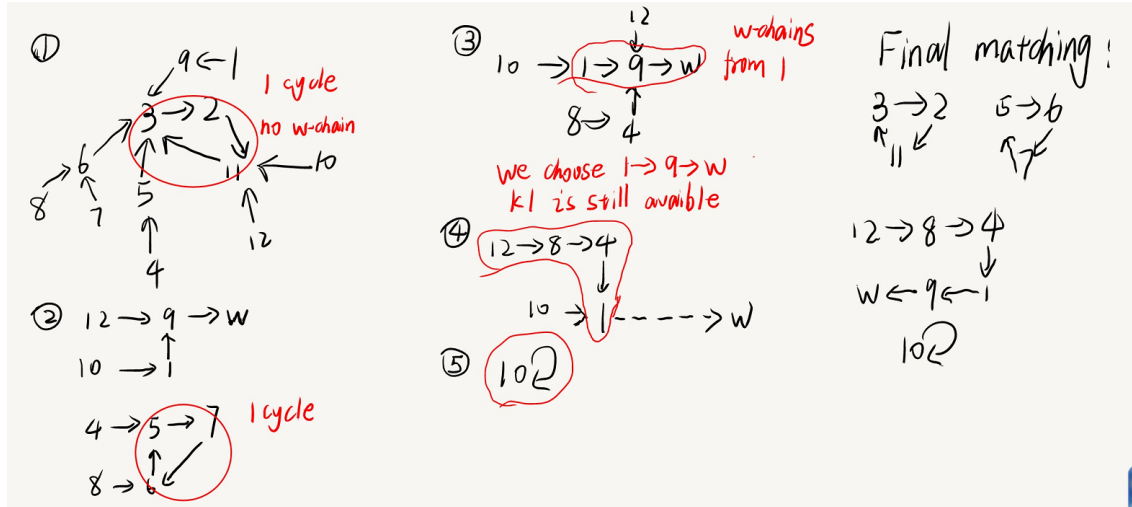 ①
9 ← 1
1 cycle
3 → 2
no w-chain
6
11 ← 10
8
7
5
12
4
② 12 → 9 → W
10 → 1
1 cycle
4 → 5 → 7
8 → 6
③
12
w-chains
10 → 1 → 9 → W
from 1
8 → 4
we choose 1 → 9 → W
k1 is still avaible
④
12 → 8 → 4
10 → 1 ------> W
⑤ 10
Final matching:
3 → 2
5 → 6
11
7
12 → 8 → 4
W ← 9 ← 1
10